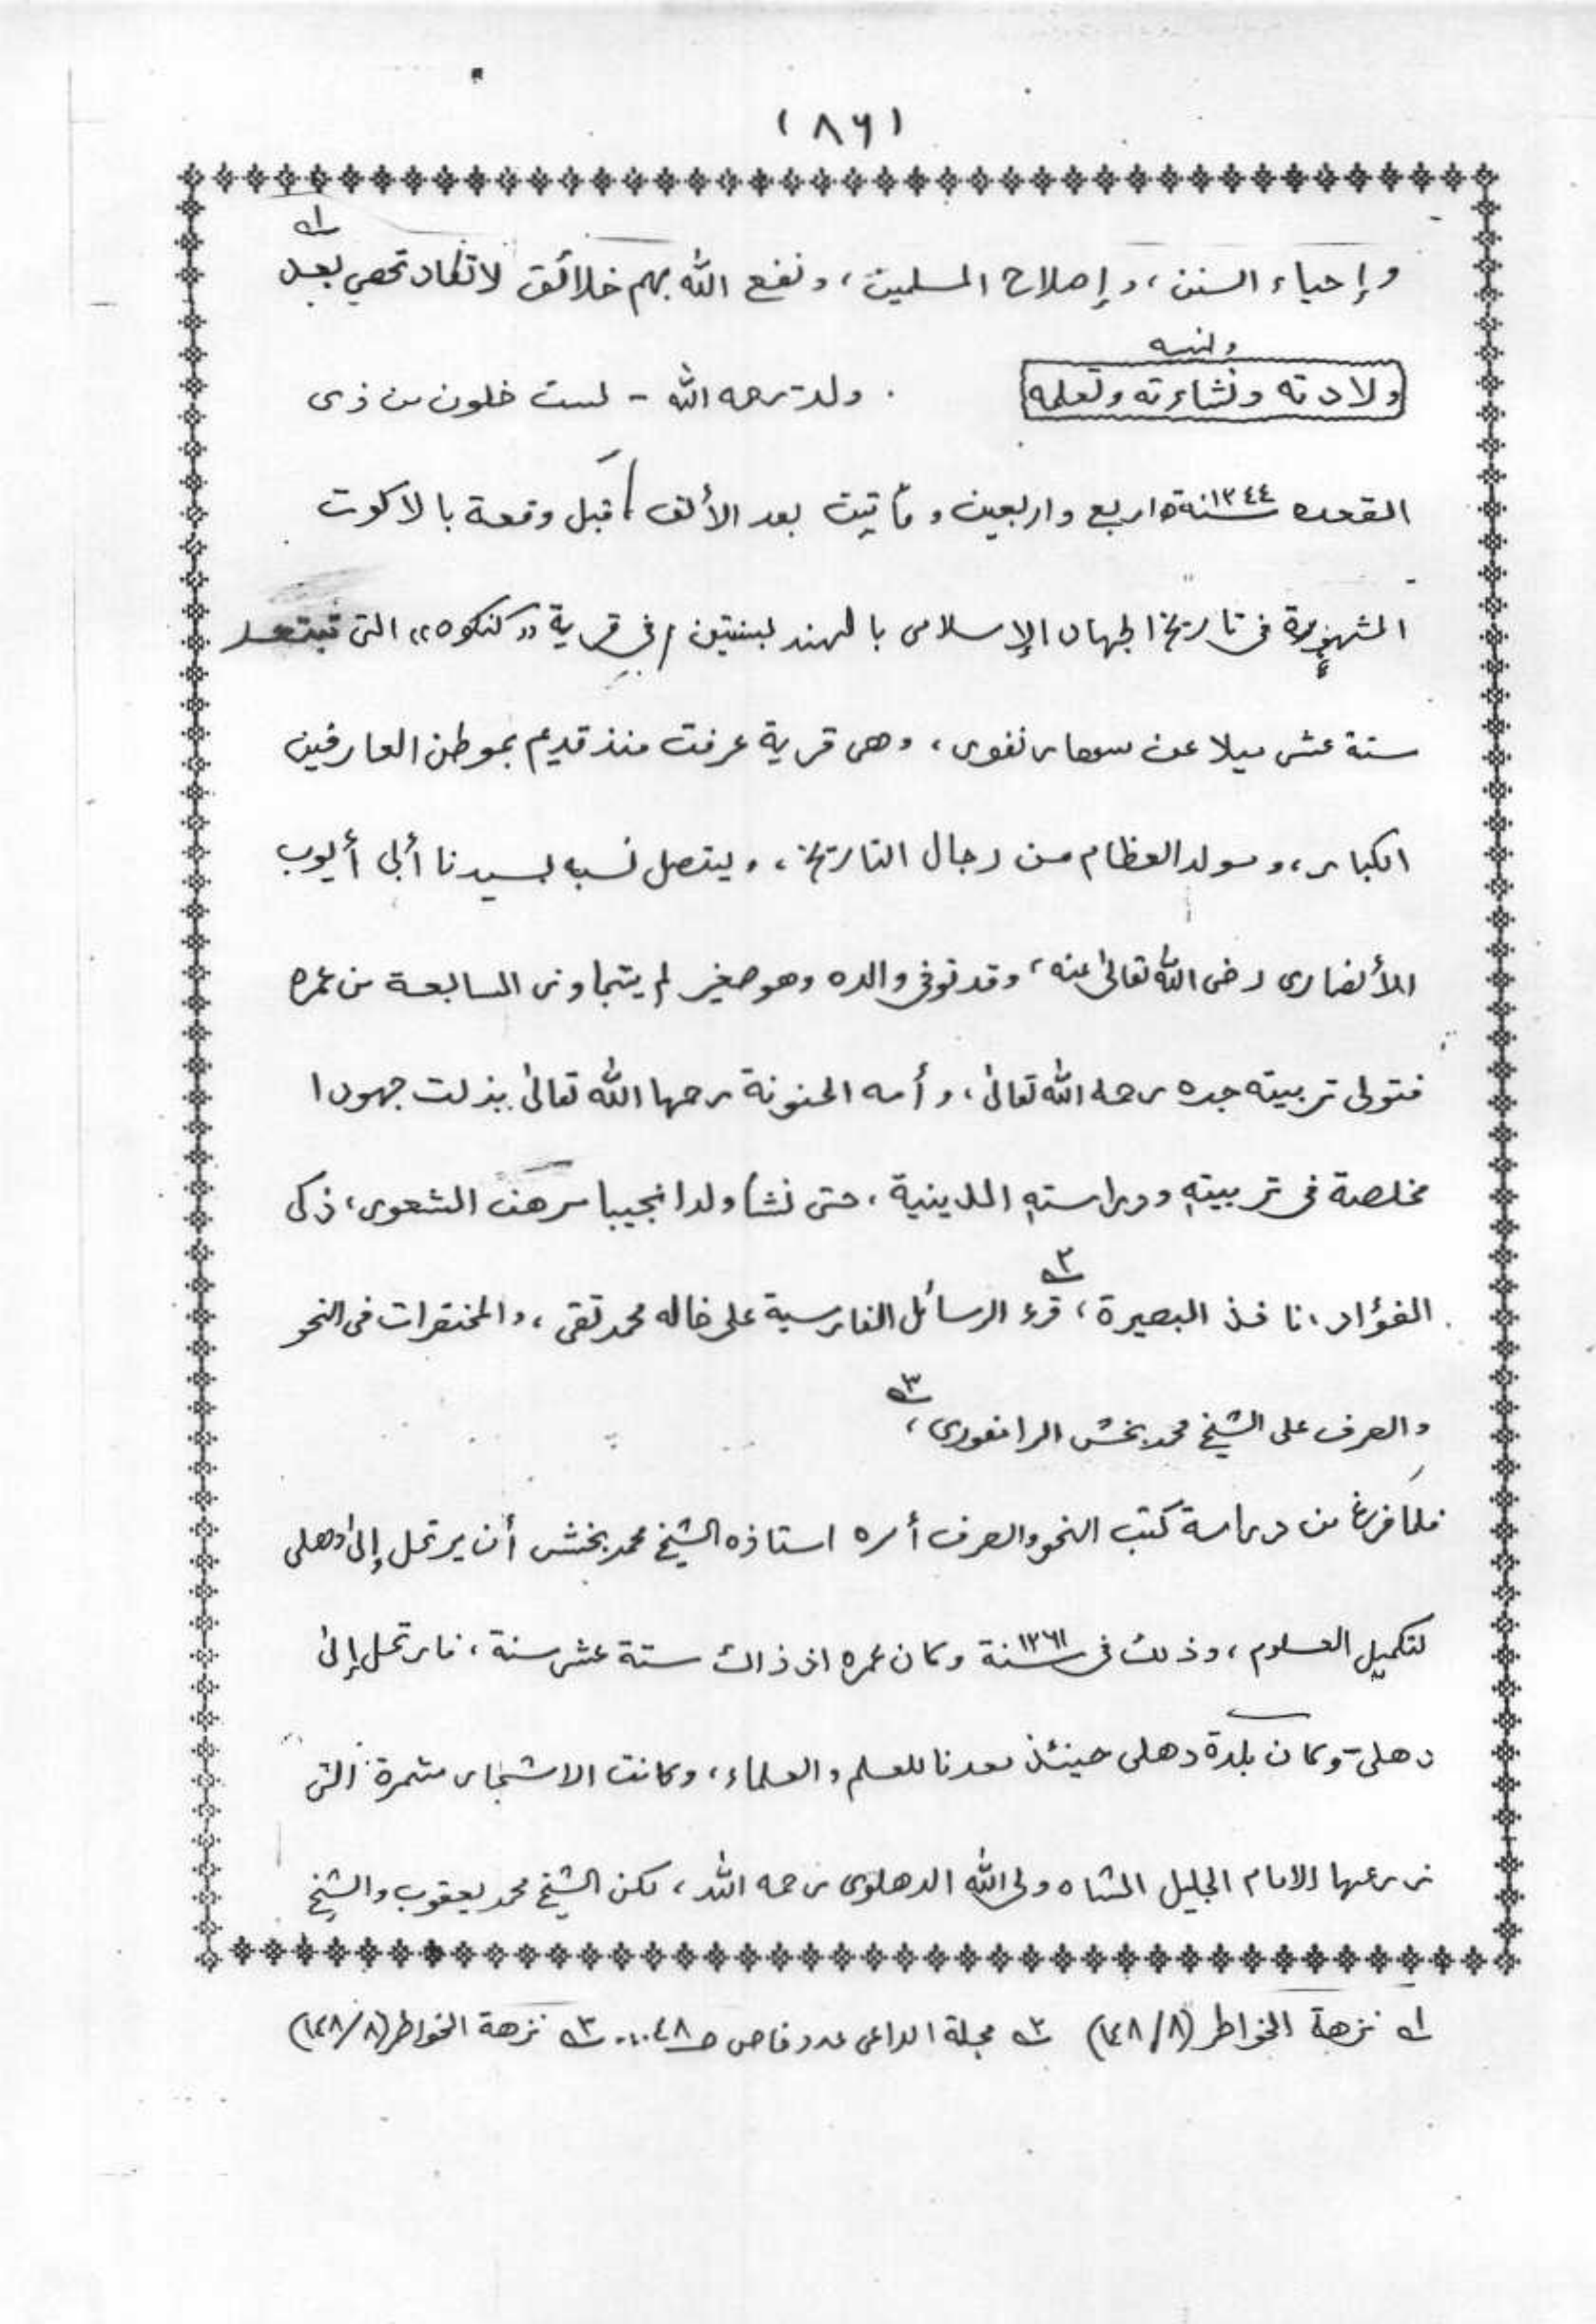 (٨٦)
وإحياء السنن، وإصلاح المسلمين، ونفع الله بهم خلائق لا تكاد تحصي بعد ١ه
ونسبه
ولادته ونشاءته وتعلمه . ولد ـ رحمه الله ـ لست خلون من ذى
القعده سنة ١٢٤٤ه اربع واربعين ومأتين بعد الألف قبل وقعة بالاكوت
المشهورة فى تاريخ الجهاد الإسلامى بالهند بسنتين فى قرية «كنكوه» التى تبتعد
ستة عشر ميلا عن سهارنفور، وهى قرية عرفت منذ قديم بموطن العارفين
الكبار، ومولد العظام من رجال التاريخ، ويتصل نسبه بسيدنا أبى أيوب
الأنصارى رضى الله تعالىٰ عنه، وقد توفى والده وهو صغير لم يتجاوز السابعة من عمره
فتولى تربيته جده رحمه الله تعالىٰ، وأمه الحنونة رحمها الله تعالىٰ بذلت جهودا
مخلصة فى تربيته ودراسته الدينية، حتى نشأ ولدا نجيبا مرهف الشعور، ذكى
الفؤاد، نافذ البصيرة، ٢ه قرء الرسائل الفارسية على خاله محمد تقى، والمختصرات فى النحو
والصرف على الشيخ محمد بخش الرامفورى، ٣ه
فلما فرغ من دراسة كتب النحو والصرف أمره استاذه الشيخ محمد بخش أن يرتحل إلىٰ دهلى
لتكميل العلوم، وذلك فى سنة ١٢٦١ وكان عمره اذ ذاك ستة عشر سنة، فارتحل إلىٰ
دهلى وكان بلدة دهلى حينئذ معدنا للعلم والعلماء، وكانت الاشجار مثمرة التى
زرعها الامام الجليل الشاه ولى الله الدهلوى رحمه الله، لكن الشيخ محمد يعقوب والشيخ
١ه نزهة الخواطر (١٤٨/٨) ٢ه مجلة الداعى عدد خاص ص ٤٨ ٣ه نزهة الخواطر (١٤٨/٨)